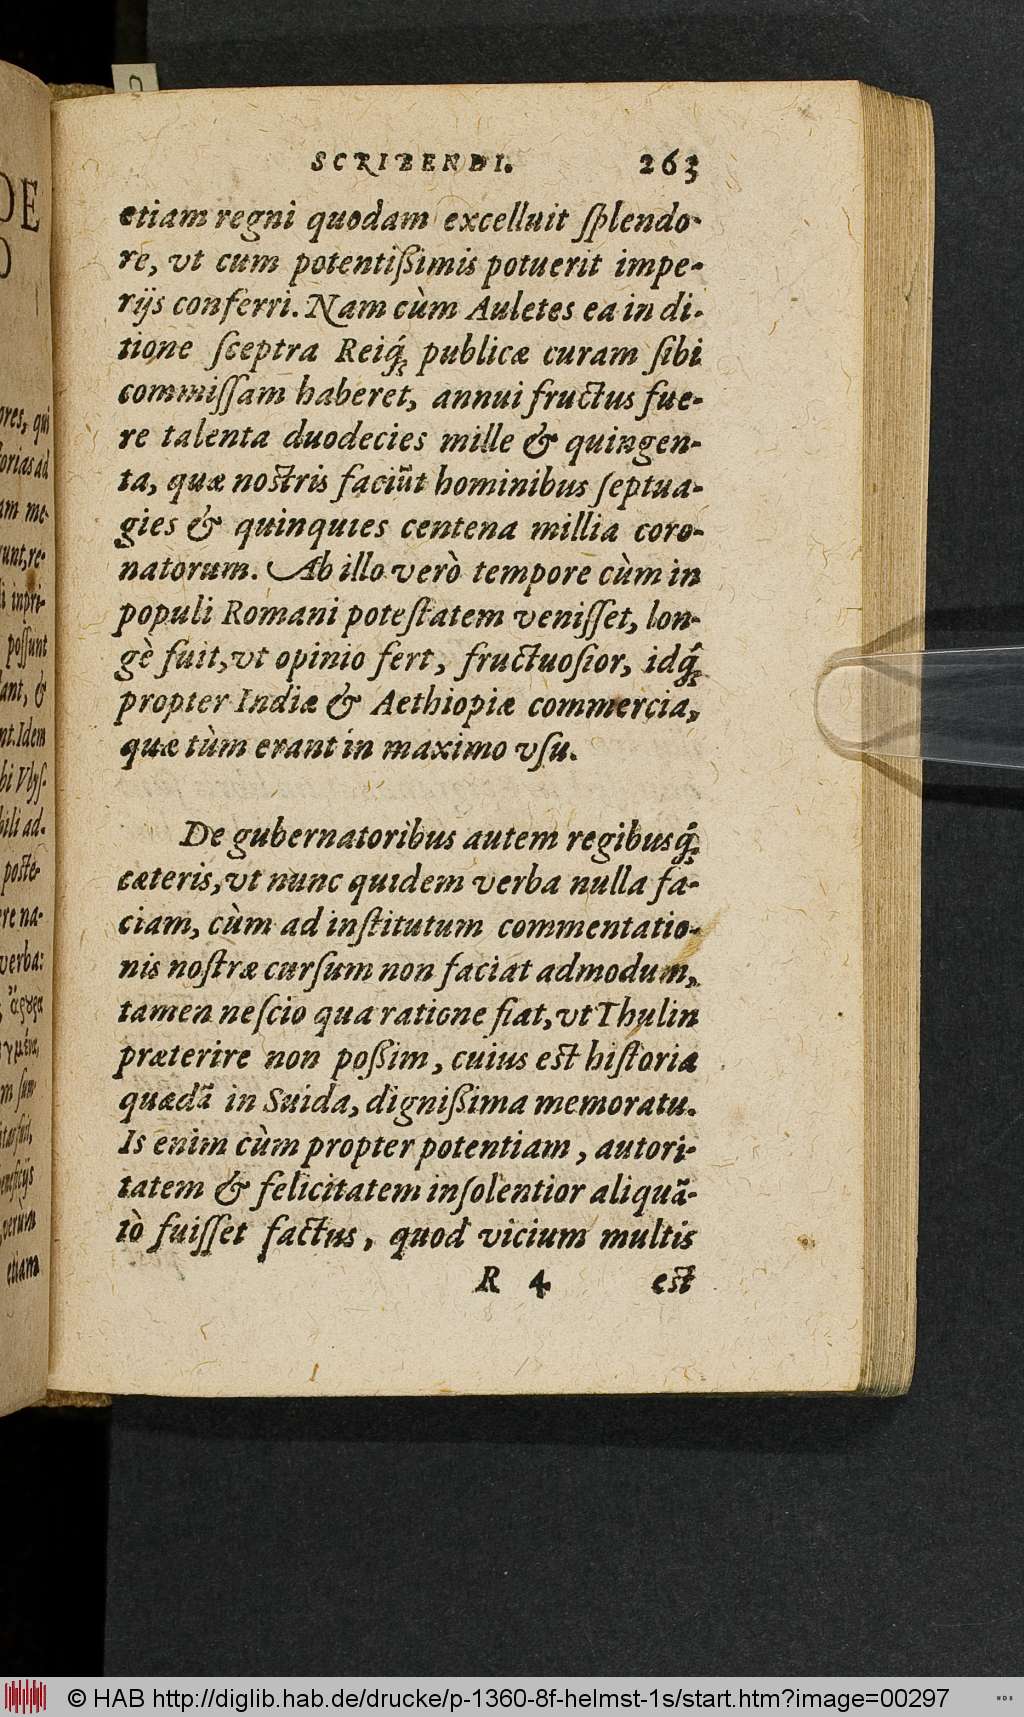 SCRIBENDI. 263
etiam regni quodam excelluit ſplendo-
re, vt cum potentißimis potuerit impe-
rijs conferri. Nam cùm Auletes ea in di-
tione ſceptra Reiq́; publicæ curam ſibi
commiſſam haberet, annui fructus fue-
re talenta duodecies mille & quingen-
ta, quæ noſtris faciũt hominibus ſeptua-
gies & quinquies centena millia coro-
natorum. Ab illo verò tempore cùm in
populi Romani poteſtatem veniſſet, lon-
gè fuit, vt opinio fert, fructuoſior, idq́;
propter Indiæ & Aethiopiæ commercia,
quæ tùm erant in maximo vſu.
De gubernatoribus autem regibusq́;
cæteris, vt nunc quidem verba nulla fa-
ciam, cùm ad inſtitutum commentatio-
nis noſtræ curſum non faciat admodum,
tamen neſcio qua ratione fiat, vt Thulin
præterire non poßim, cuius eſt hiſtoria
quædã in Suida, dignißima memoratu.
Is enim cùm propter potentiam, autori-
tatem & felicitatem inſolentior aliquã-
tò fuiſſet factus, quod vicium multis
R 4 eſt
DE
O
ores, qui
torias ad
am me-
runt, re-
di inpri-
poſſunt
dant, &
nt. Idem
bi Vlyſ-
bili ad-
poſte-
ere na-
verba:
etiam
© HAB http://diglib.hab.de/drucke/p-1360-8f-helmst-1s/start.htm?image=00297